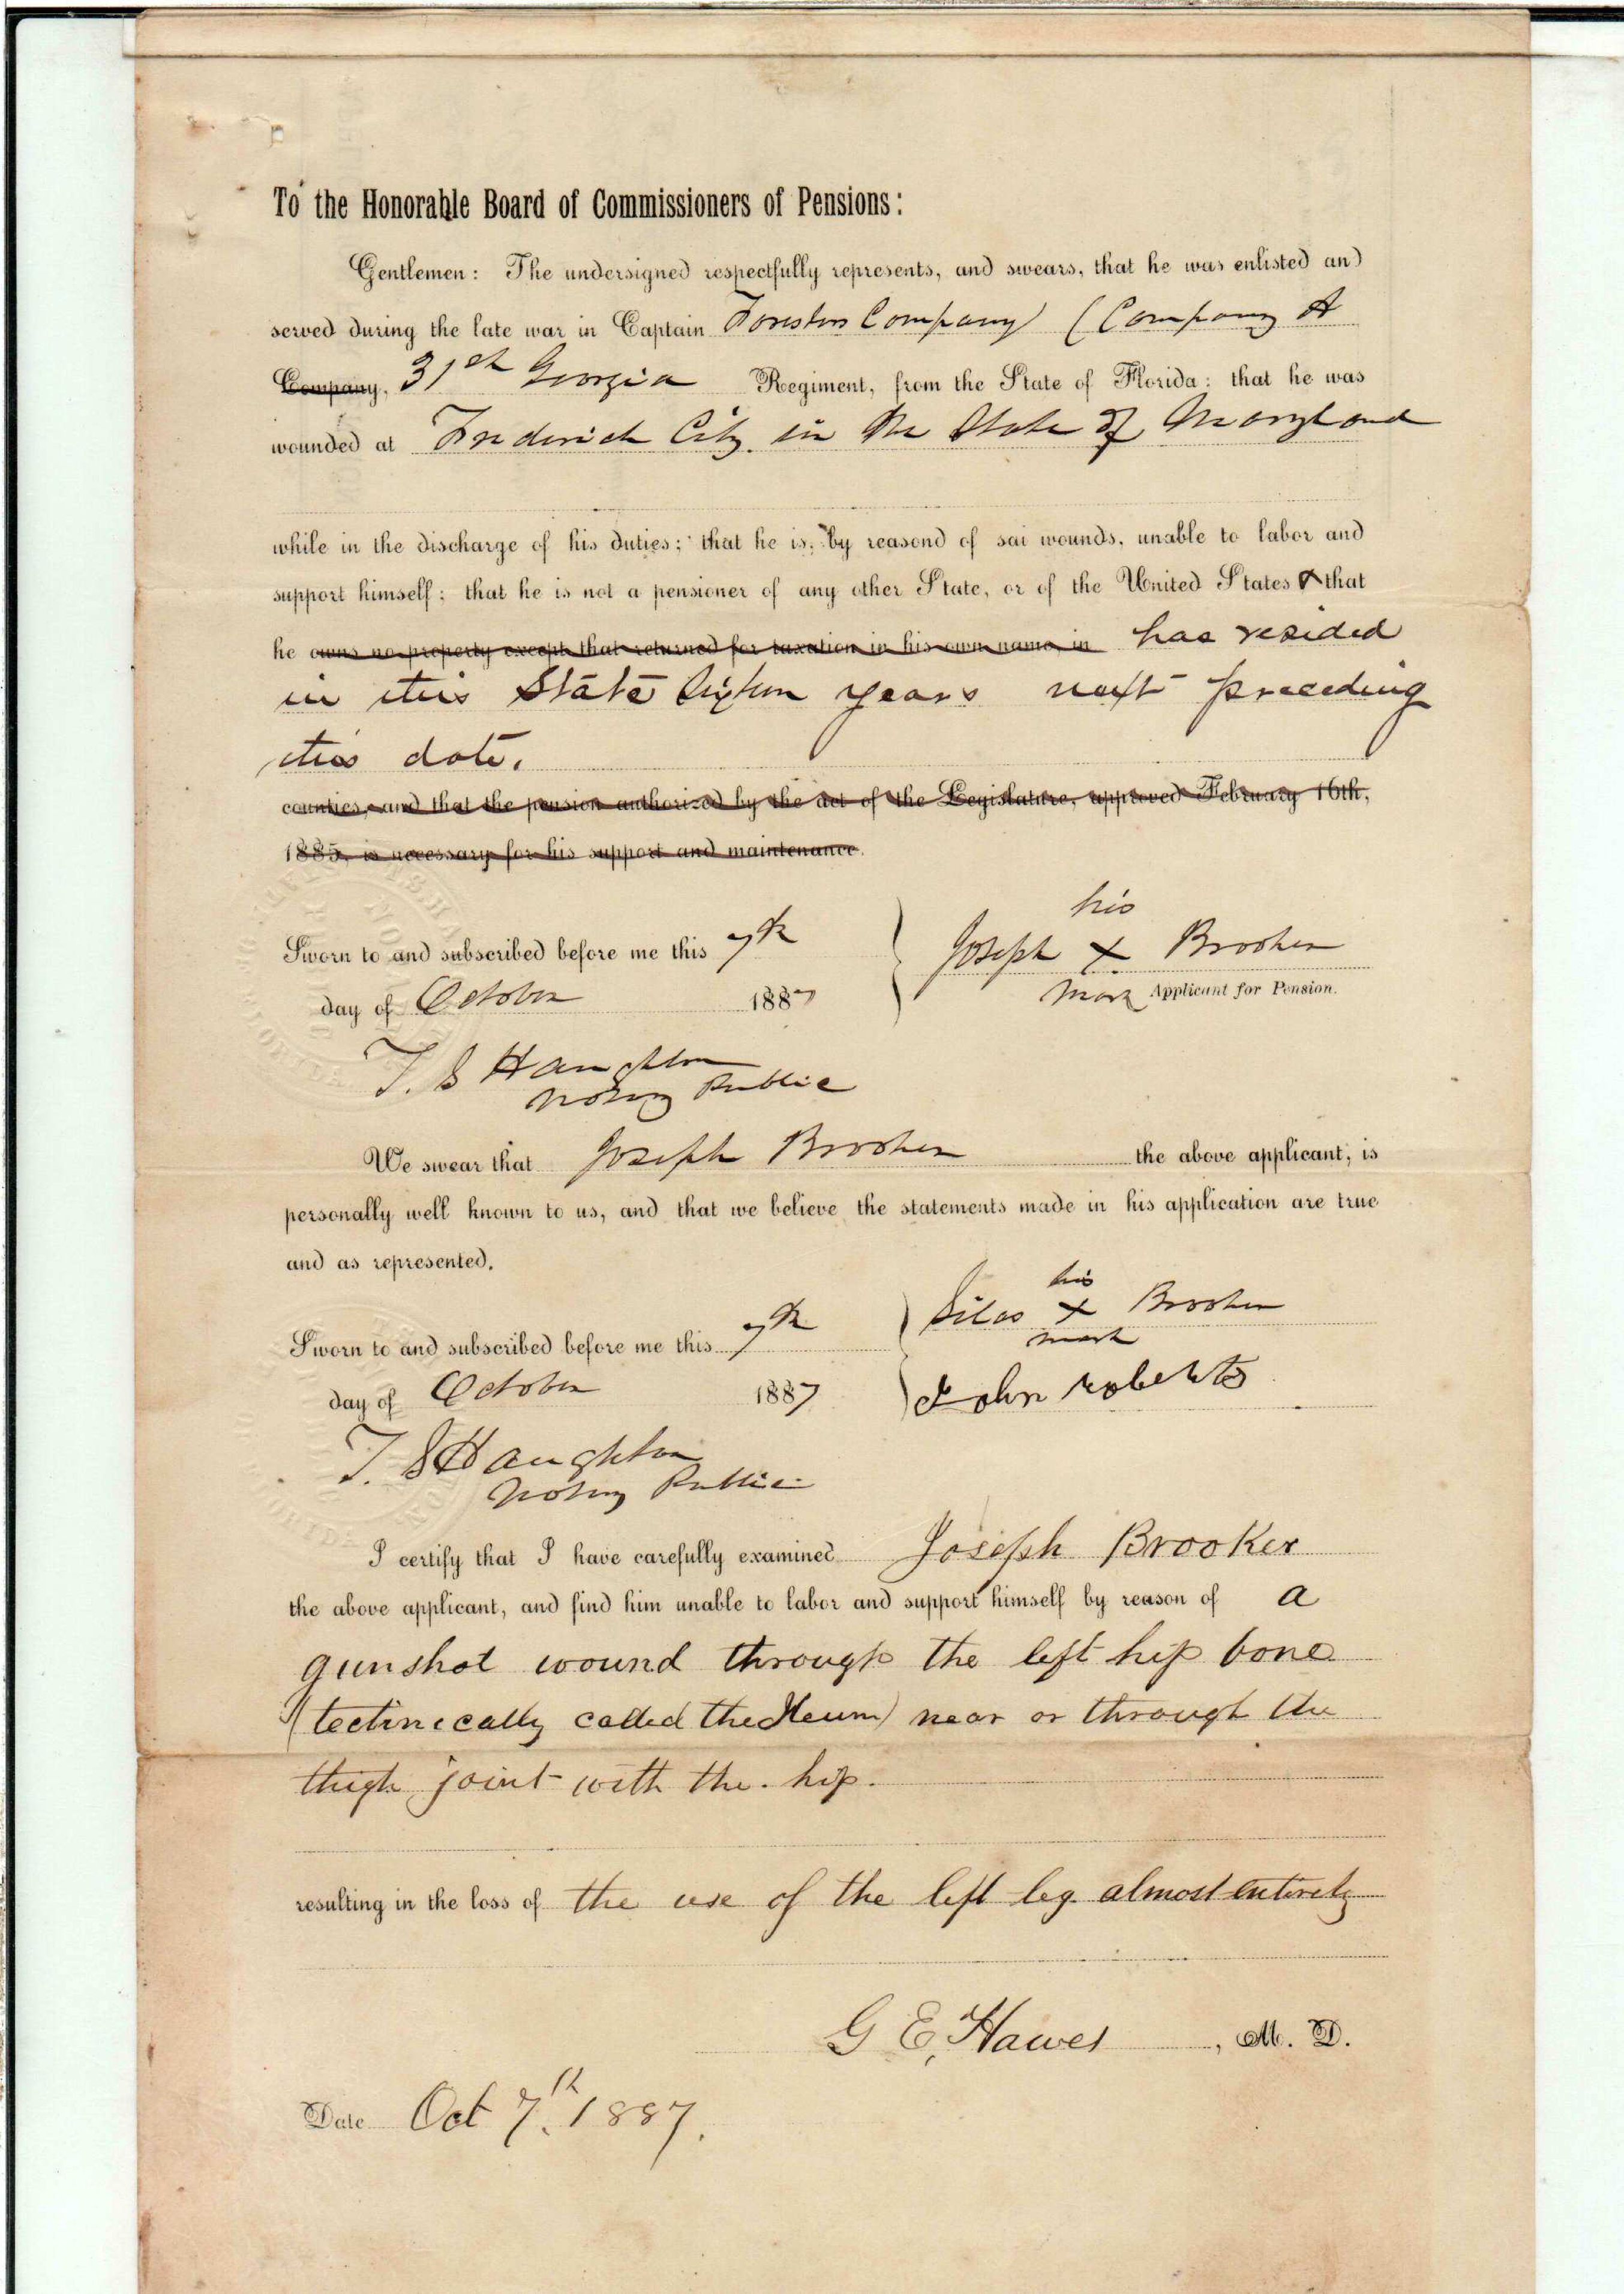 To the Honorable Board of Commissioners of Pensions:
Gentlemen: The undersigned respectfully represents, and swears, that he was enlisted and
served during the late war in Captain Foresters Company (Company A
Company, 31st Georgia Regiment, from the State of Florida: that he was
wounded at Frederick City in the State of Maryland
while in the discharge of his duties; that he is, by reasond of sai wounds, unable to labor and
support himself; that he is not a pensioner of any other State, or of the United States & that
he owns no property except that returned for taxation in his own name in has resided
in this State Sixteen years next preceding
this date.
counties, and that the pension authorized by the act of the Legislature, approved February 16th,
1885, is necessary for his support and maintenance.
his
Sworn to and subscribed before me this 7th Joseph X Brooker
mark Applicant for Pension.
day of October 1887
T. S Haughton
Notary Public
We swear that Joseph Brooker the above applicant, is
personally well known to us, and that we believe the statements made in his application are true
and as represented.
his
Silas X Brooker
mark
Sworn to and subscribed before me this 7th
day of October 1887 John roberts
T. S Haughton
Notary Public
I certify that I have carefully examined Joseph Brooker
the above applicant, and find him unable to labor and support himself by reason of a
gunshot wound through the left hip bone
(technically called the Ileum) near or through the
thigh joint with the hip.
resulting in the loss of the use of the left leg almost entirely
G E, Hawes, M. D.
Date Oct 7th, 1887.